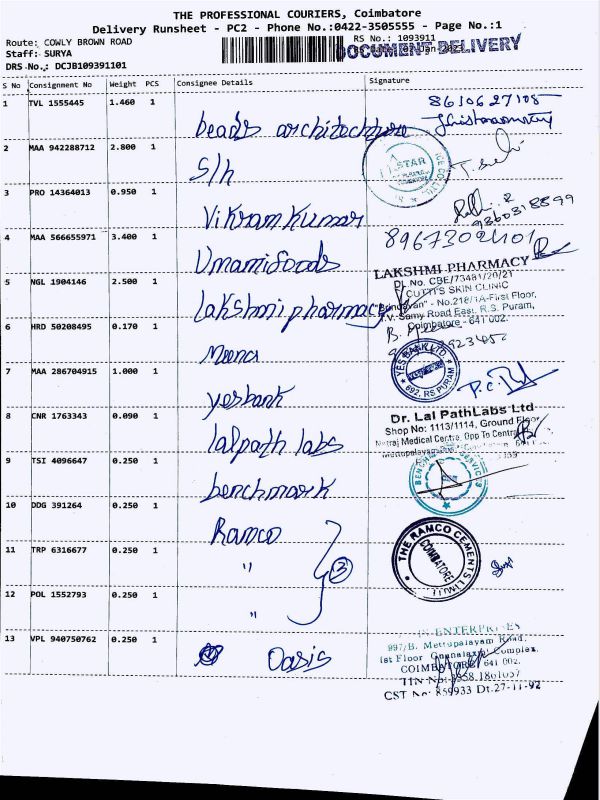 THE PROFESSIONAL COURIERS, Coimbatore
Delivery Runsheet - PC2 - Phone No.:0422-3505555 - Page No.:1
Route: COWLY BROWN ROAD
RS No.: 1093911
Staff: SURYA
DOCUMENT DELIVERY
DRS No.: DCJB109391101
S No Consignment No Weight PCS Consignee Details Signature
1 TVL 1555445 1.460 1 beads 8610627105
2 MAA 942288712 2.800 1 S/h STAR
3 PRO 14364013 0.950 1 Vikram Kumar 9360318599
4 MAA 566655971 3.400 1 Umamifoods 8967302401
LAKSHMI PHARMACY
DL No. CBE/73481/20/21
CUTTI'S SKIN CLINIC
5 NGL 1904146 2.500 1 lakshmi pharmacy
No.218/1A-First Floor,
T.V. Samy Road East, R.S. Puram,
Coimbatore - 641 002.
6 HRD 50208495 0.170 1 Meena
7 MAA 286704915 1.000 1 yesbank YES BANK LTD 692, RS PURAM
8 CNR 1763343 0.090 1 lalpath labs
Dr. Lal PathLabs Ltd
Shop No: 1113/1114, Ground Floor
Natraj Medical Centre, Opp To Central
9 TSI 4096647 0.250 1 benchmark
10 DDG 391264 0.250 1 Ramco
THE RAMCO CEMENTS LIMITED COIMBATORE
11 TRP 6316677 0.250 1 " 3
12 POL 1552793 0.250 1 "
13 VPL 940750762 0.250 1 Oasis
ENTERPRISES
997/B, Mettupalayam Road,
1st Floor Complex,
COIMBATORE 641 002.
CST No: 859933 Dt.27-11-92